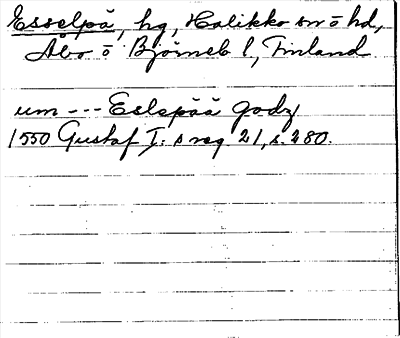 Esselpä, hg, Halikko sn o hd,
Åbo o Björneb l., Finland
um --- Eslspää godz
1550 Gustaf I: s reg 21, s. 280.